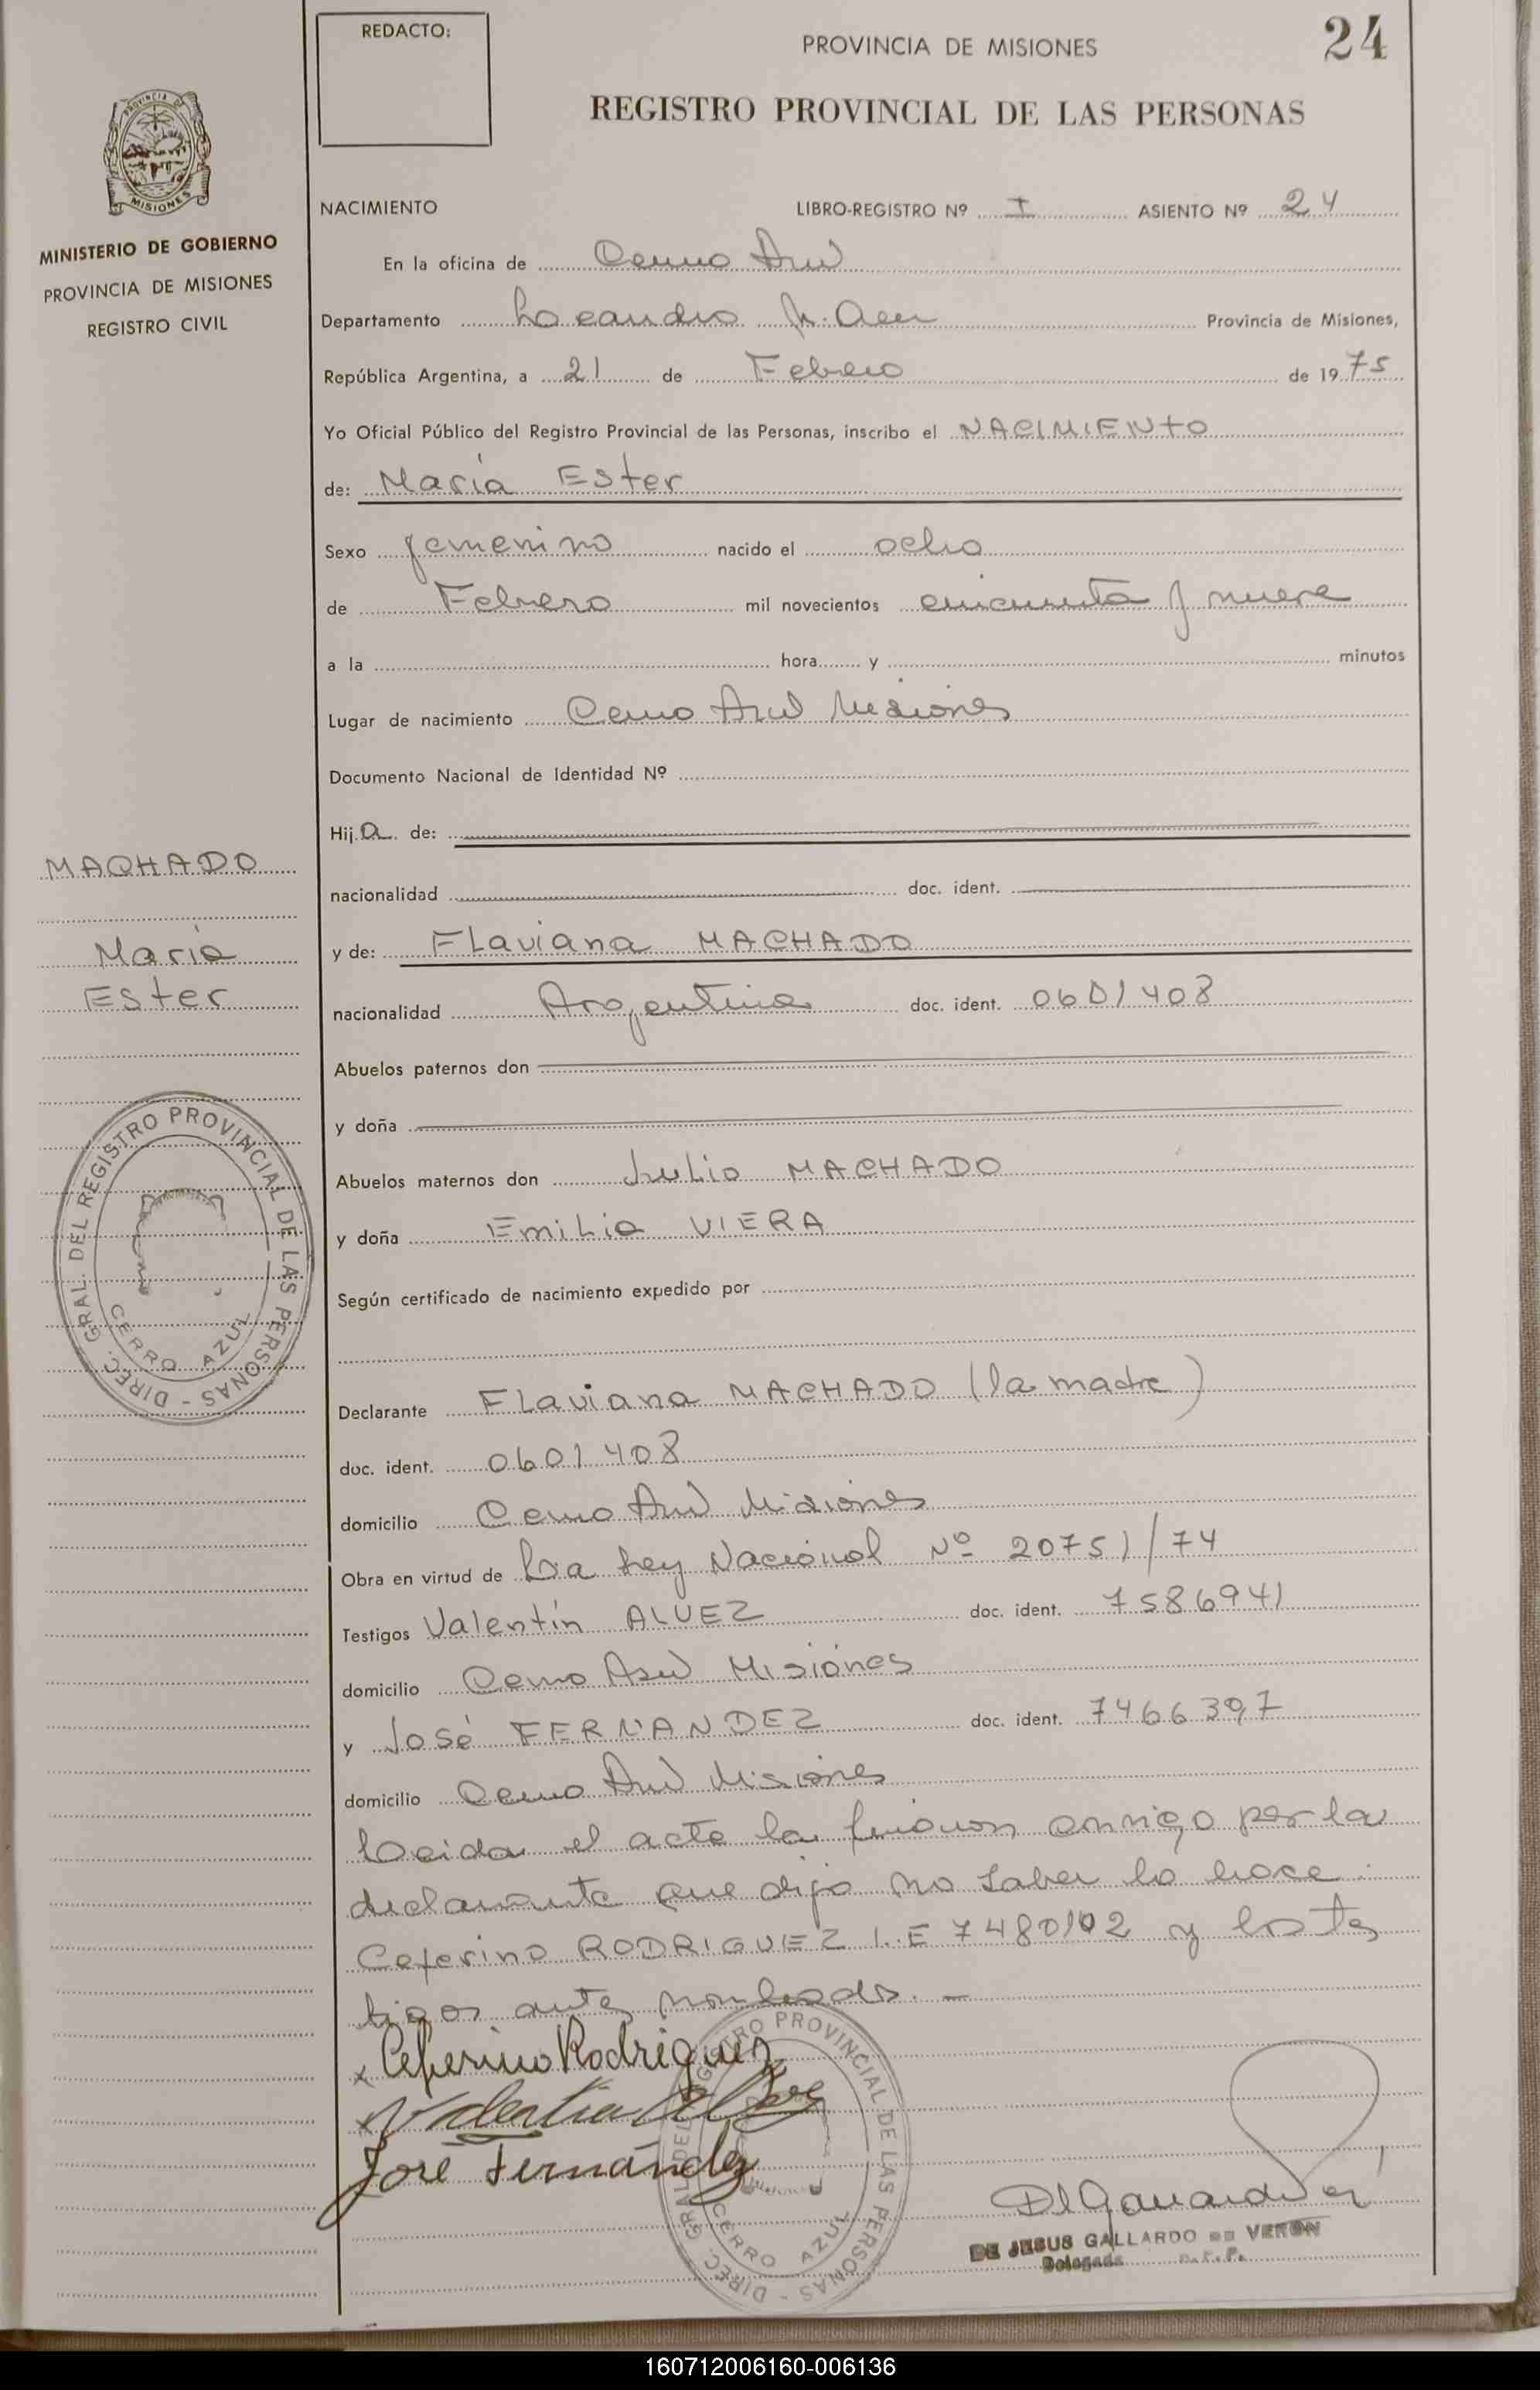 REDACTO:
PROVINCIA DE MISIONES
24
REGISTRO PROVINCIAL DE LAS PERSONAS
PROVINCIA DE
MISIONES
MINISTERIO DE GOBIERNO
PROVINCIA DE MISIONES
REGISTRO CIVIL
NACIMIENTO LIBRO-REGISTRO Nº I ASIENTO Nº 24
En la oficina de Cerro Azul
Departamento Leandro N. Alem Provincia de Misiones,
República Argentina, a 21 de Febrero de 1975
Yo Oficial Público del Registro Provincial de las Personas, inscribo el NACIMIENTO
de: María Ester
Sexo femenino nacido el ocho
de Febrero mil novecientos cincuenta y nueve
a la hora y minutos
Lugar de nacimiento Cerro Azul Misiones
Documento Nacional de Identidad Nº
Hija de:
nacionalidad doc. ident.
y de: Flaviana MACHADO
nacionalidad Argentina doc. ident. 0601408
Abuelos paternos don
y doña
Abuelos maternos don Julio MACHADO
y doña Emilia VIERA
Según certificado de nacimiento expedido por
Declarante Flaviana MACHADO (la madre)
doc. ident. 0601408
domicilio Cerro Azul Misiones
Obra en virtud de La Ley Nacional Nº 20751/74
Testigos Valentín ALVEZ doc. ident. 7586941
domicilio Cerro Azul Misiones
y José FERNANDEZ doc. ident. 7466397
domicilio Cerro Azul Misiones
Leida el acta la firman conmigo por la
declarante que dijo no saber lo hace:
Ceferino RODRIGUEZ L.E 7480102 y los tes
tigos antes nombrados.-
x Ceferino Rodriguez
x Valentin Alvez
José Fernández
DE JESUS GALLARDO DE VERON
Delegada D.R.P.
MACHADO
María
Ester
DIREC. GRAL. DEL REGISTRO PROVINCIAL DE LAS PERSONAS -
CERRO AZUL
DIREC. GRAL. DEL REGISTRO PROVINCIAL DE LAS PERSONAS -
CERRO AZUL
160712006160-006136